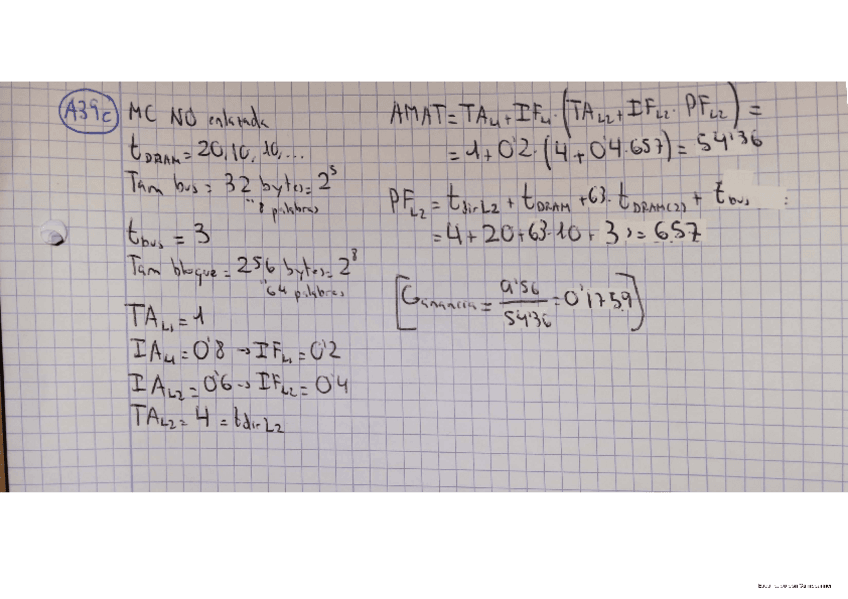 A39c
MC NO enlazada
t_DRAM = 20, 10, 10, ...
Tam bus = 32 bytes = 2^5
"8 palabras
t_bus = 3
Tam bloque = 256 bytes = 2^8
"64 palabras
TA_L1 = 1
IA_L1 = 0'8 → IF_L1 = 0'2
IA_L2 = 0'6 → IF_L2 = 0'4
TA_L2 = 4 = t_dir L2
AMAT = TA_L1 + IF_L1 · (TA_L2 + IF_L2 · PF_L2) =
= 1 + 0'2 · (4 + 0'4 · 657) = 54'36
PF_L2 = t_dir L2 + t_DRAM + 63 · t_DRAM(2) + t_bus
= 4 + 20 + 63 · 10 + 3 = 657
[Ganancia = 9'56 / 54'36 = 0'1759]